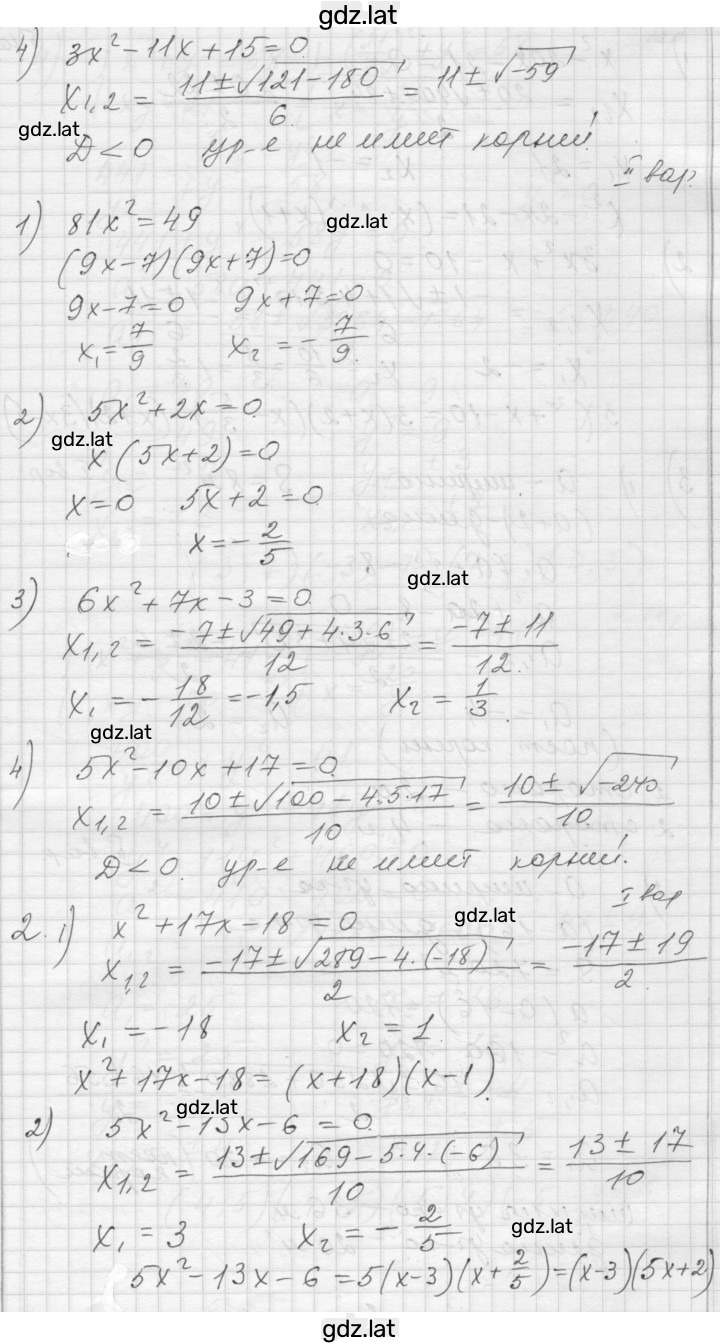 gdz.lat
4) 3x² - 11x + 15 = 0
x₁,₂ = (11 ± √(121 - 180))/6 = 11 ± √(-59)
gdz.lat
D < 0 ур-е не имеет корней.
II вар.
1) 81x² = 49
gdz.lat
(9x - 7)(9x + 7) = 0
9x - 7 = 0 9x + 7 = 0
x₁ = 7/9 x₂ = -7/9.
2) 5x² + 2x = 0
gdz.lat
x(5x + 2) = 0
x = 0 5x + 2 = 0
x = -2/5
gdz.lat
3) 6x² + 7x - 3 = 0
x₁,₂ = (-7 ± √(49 + 4·3·6))/12 = (-7 ± 11)/12.
x₁ = -18/12 = -1,5 x₂ = 1/3.
gdz.lat
4) 5x² - 10x + 17 = 0
x₁,₂ = (10 ± √(100 - 4·5·17))/10 = (10 ± √(-240))/10.
D < 0. ур-е не имеет корней.
I вар
2. 1) x² + 17x - 18 = 0
gdz.lat
x₁,₂ = (-17 ± √(289 - 4·(-18)))/2 = (-17 ± 19)/2.
x₁ = -18 x₂ = 1.
x² + 17x - 18 = (x + 18)(x - 1).
gdz.lat
2) 5x² - 13x - 6 = 0
x₁,₂ = (13 ± √(169 - 5·4·(-6)))/10 = (13 ± 17)/10
x₁ = 3 x₂ = -2/5
gdz.lat
5x² - 13x - 6 = 5(x - 3)(x + 2/5) = (x - 3)(5x + 2)
gdz.lat